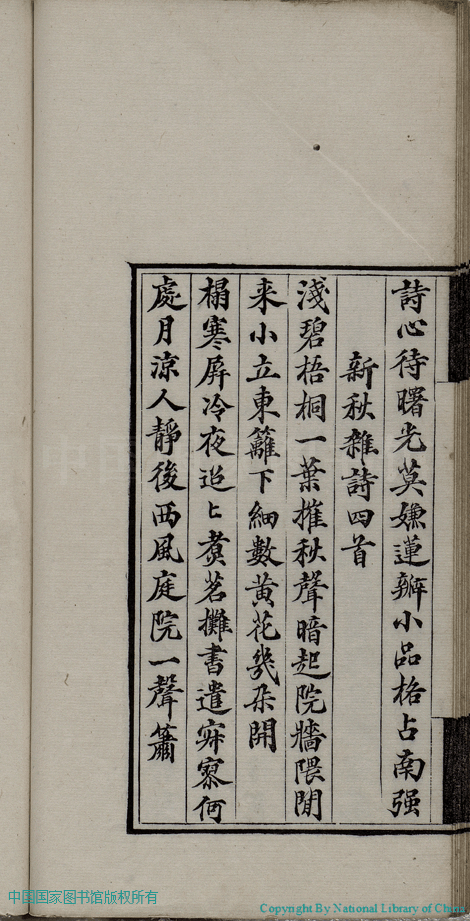 詩心待曙光莫嫌蓮瓣小品格占南强
新秋雜詩四首
淺碧梧桐一葉摧秋聲暗起院牆隈閒
来小立東籬下細數黄花幾朵開
榻寒屏冷夜迢〻煑茗攤書遣寂寥何
處月涼人靜後西風庭院一聲簫
中国国家图书馆版权所有
Copyright By National Library of China